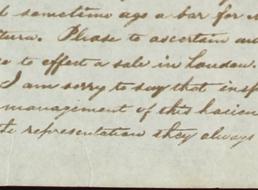 sometime ago a bar for
tura. Please to ascertain
to effect a sale in London.
I am sorry to say that
management of this hacien
te representation they always